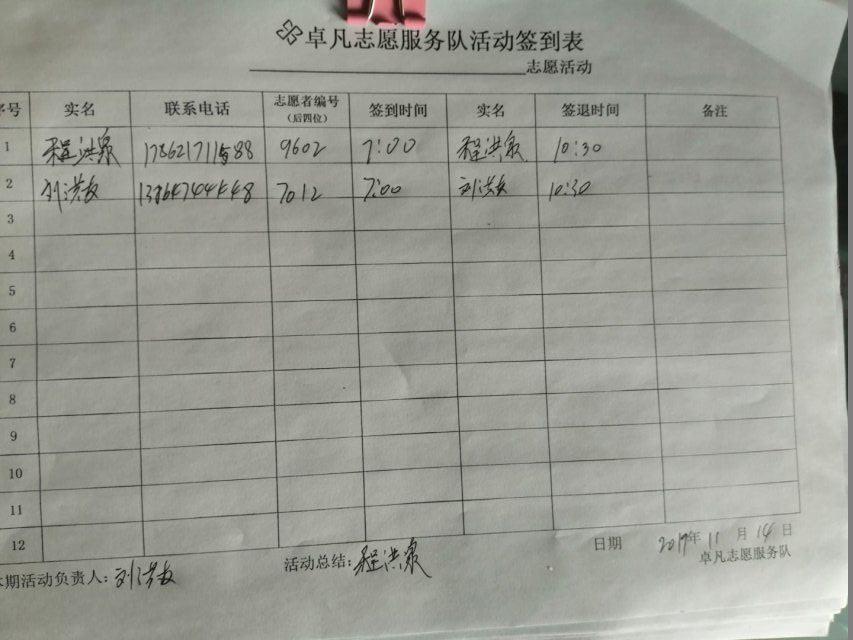 卓凡志愿服务队活动签到表
志愿活动
序号 实名 联系电话 志愿者编号(后四位) 签到时间 实名 签退时间 备注
1 程洪泉 9602 7:00 程洪泉 10:30
2 刘洪友 7012 7:00 刘洪友 10:30
3
4
5
6
7
8
9
10
11
12
本期活动负责人:刘洪友 活动总结:程洪泉 日期 2019年11月14日
卓凡志愿服务队